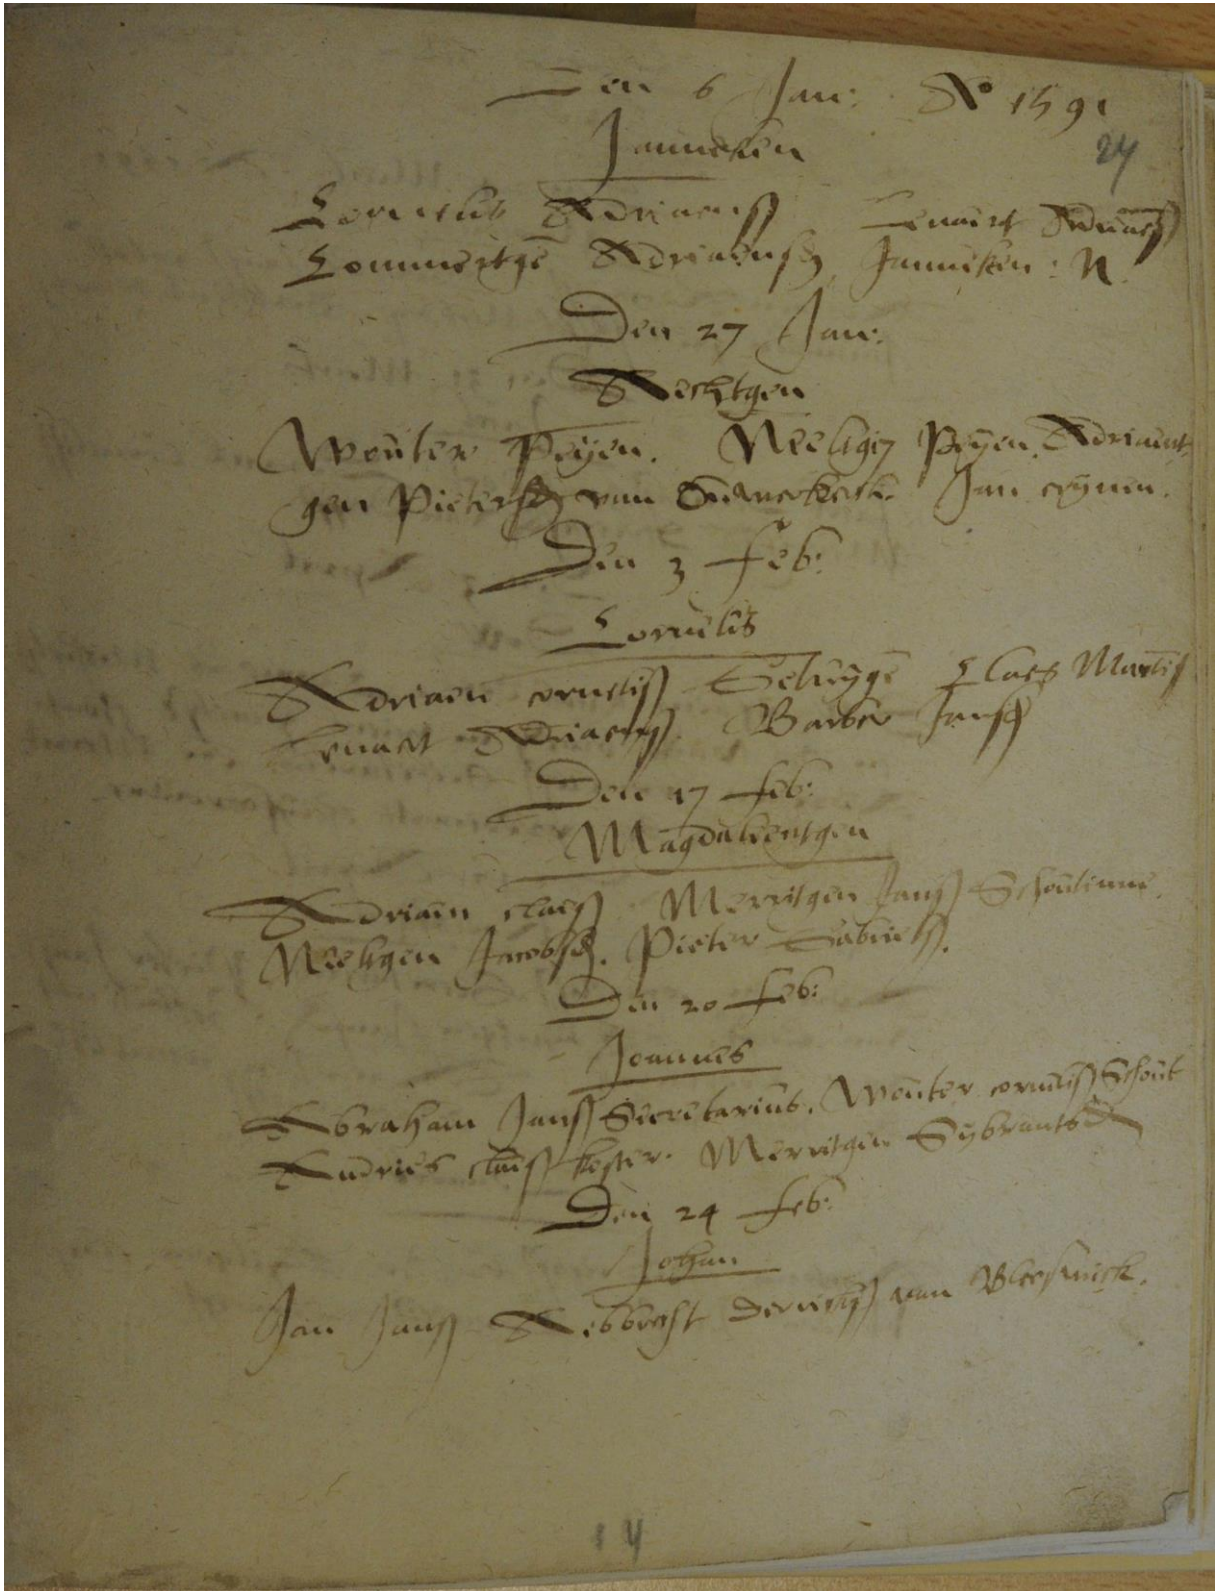 Den 6 Jan: Aº 1591
24
Janneken
Cornelis Adriaenss Lenaert Adriaenss
Commertge Adriaensd Janneken: N.
Den 27 Jan:
Aechtgen
Wouter Peyen. Neeltgen Peyen. Adriaent
gen Pietersd van Jan crynen.
Den 3 feb:
Cornelis
Adriaen corneliss Getuyge Claes Martiss
Lenaert Adriaenss. Barber Jansd
Den 17 feb:
Magdaleentgen
Adriaen claess Merritgen Janss Schoutinne.
Neeltgen Jacobsd. Pieter Gabriels.
Den 20 feb:
Joannes
Abraham Janss Secretarius. Wouter corneliss Schout
Andries claess koster. Merritgen Sybrantsd
Den 24 feb:
Johan
Jan Janss van Bleeswick.
14